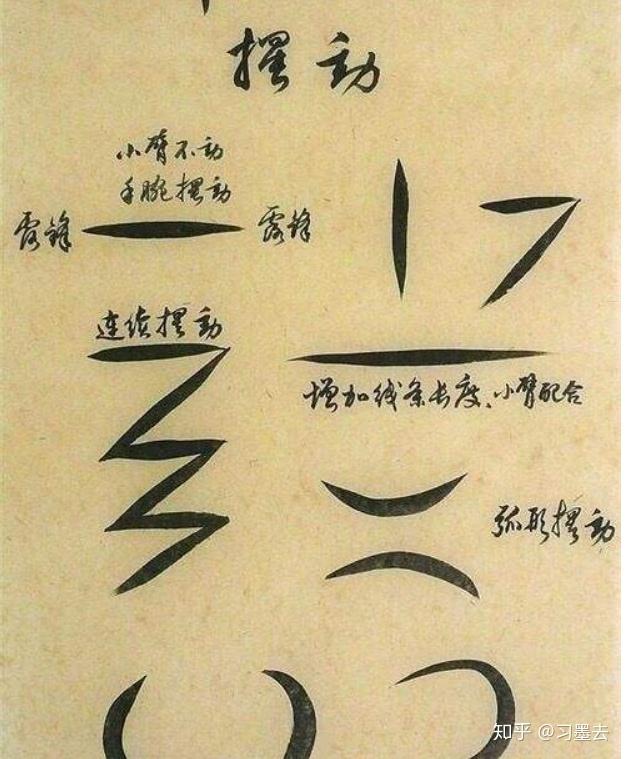 摆动
小臂不动
手腕摆动
露锋
露锋
连续摆动
增加线条长度、小臂配合
弧形摆动
知乎 @习墨去